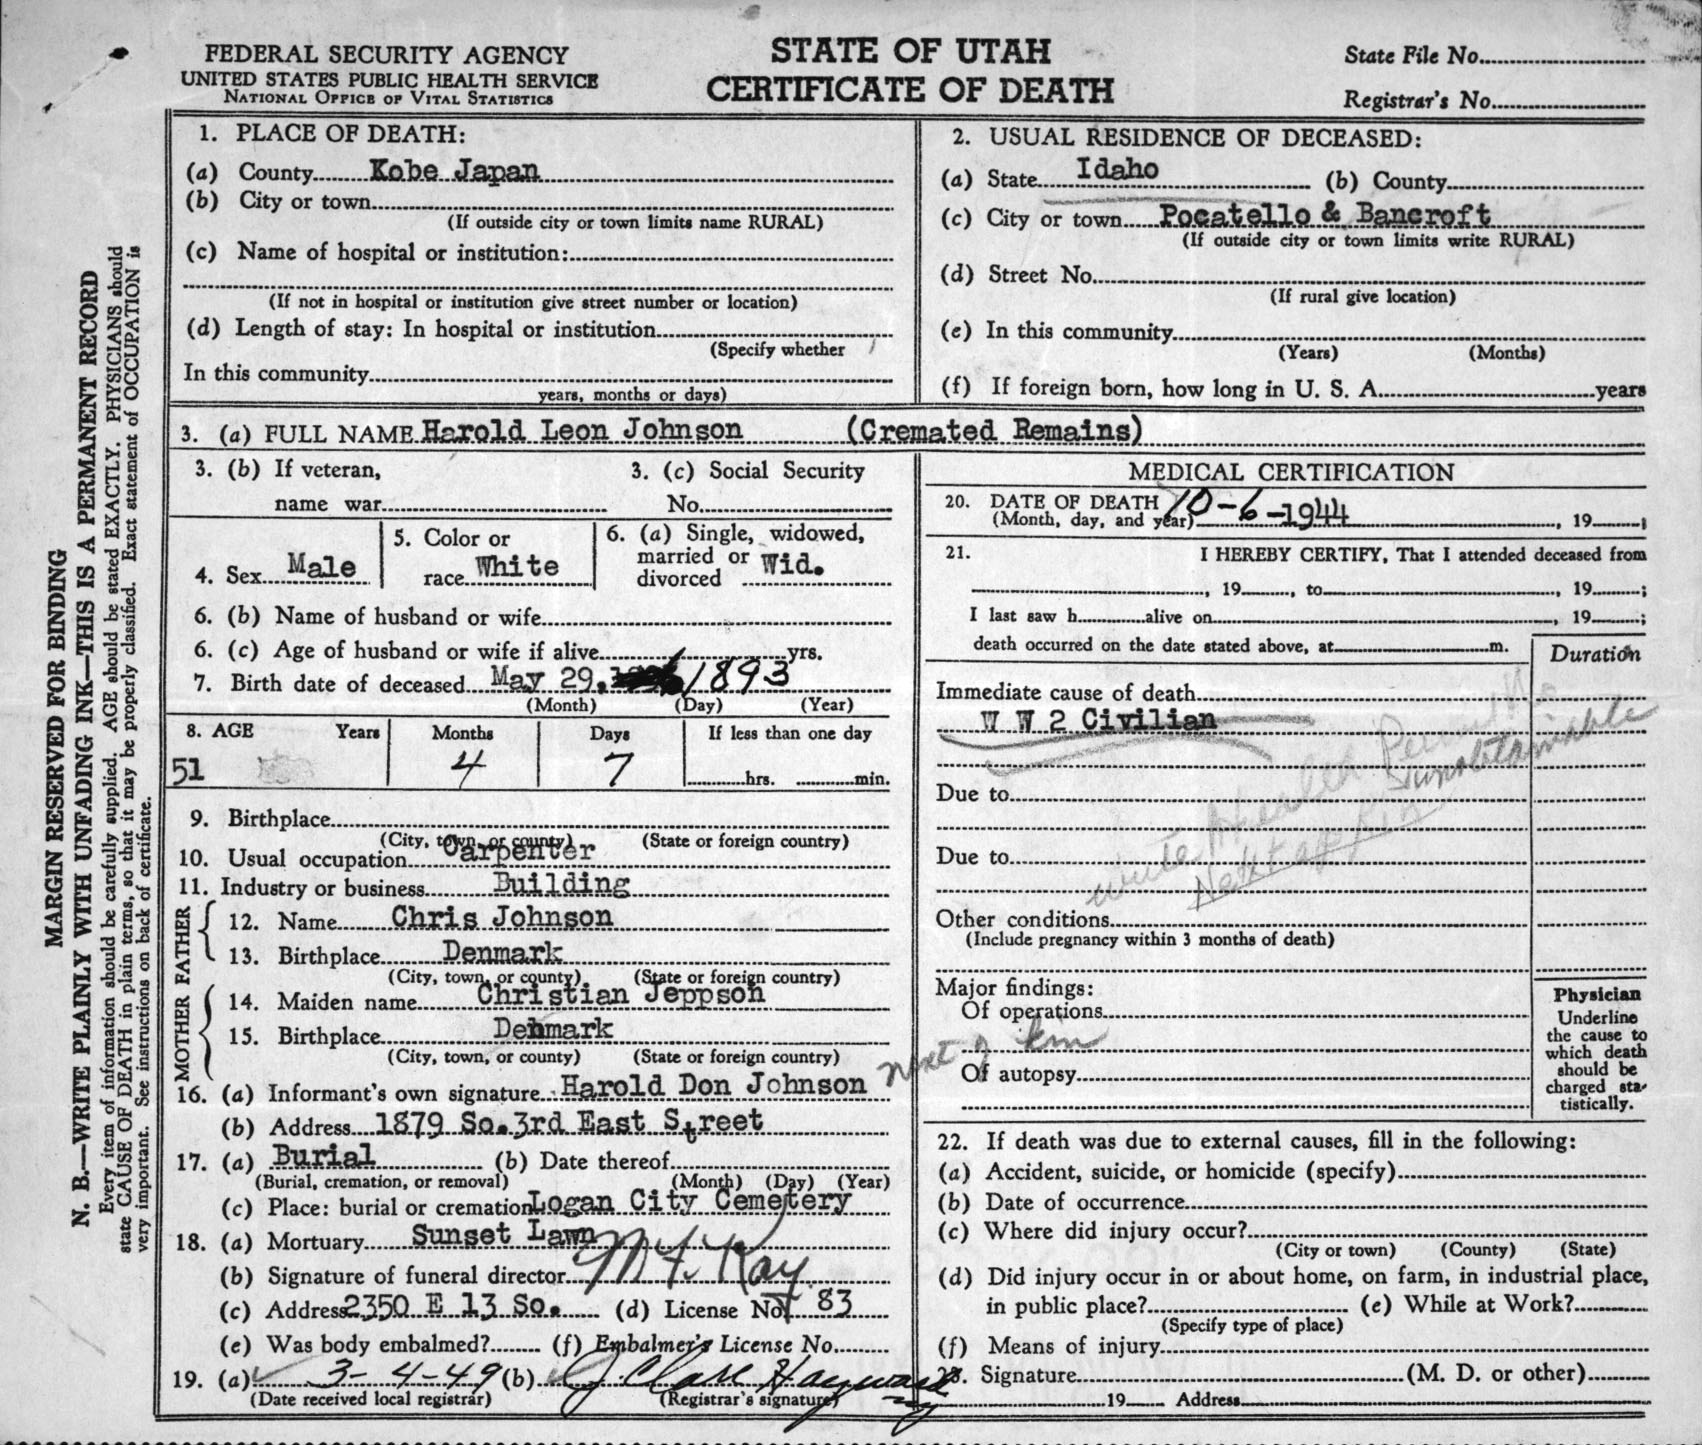 FEDERAL SECURITY AGENCY
UNITED STATES PUBLIC HEALTH SERVICE
NATIONAL OFFICE OF VITAL STATISTICS
STATE OF UTAH
CERTIFICATE OF DEATH
State File No.
Registrar's No.
MARGIN RESERVED FOR BINDING
N. B.—WRITE PLAINLY WITH UNFADING INK—THIS IS A PERMANENT RECORD
Every item of information should be carefully supplied. AGE should be stated EXACTLY. PHYSICIANS should
state CAUSE OF DEATH in plain terms, so that it may be properly classified. Exact statement of OCCUPATION is
very important. See instructions on back of certificate.
1. PLACE OF DEATH:
(a) County Kobe Japan
(b) City or town
(If outside city or town limits name RURAL)
(c) Name of hospital or institution:
(If not in hospital or institution give street number or location)
(d) Length of stay: In hospital or institution
(Specify whether
In this community
years, months or days)
2. USUAL RESIDENCE OF DECEASED:
(a) State Idaho (b) County
(c) City or town Pocatello & Bancroft
(If outside city or town limits write RURAL)
(d) Street No.
(If rural give location)
(e) In this community
(Years) (Months)
(f) If foreign born, how long in U. S. A. years
3. (a) FULL NAME Harold Leon Johnson (Cremated Remains)
3. (b) If veteran, 3. (c) Social Security
name war No.
4. Sex Male
5. Color or
race White
6. (a) Single, widowed,
married or
divorced Wid.
6. (b) Name of husband or wife
6. (c) Age of husband or wife if alive yrs.
7. Birth date of deceased May 29, 1893
(Month) (Day) (Year)
8. AGE Years Months Days If less than one day
51 4 7 hrs. min.
9. Birthplace
(City, town, or county) (State or foreign country)
10. Usual occupation Carpenter
11. Industry or business Building
FATHER
12. Name Chris Johnson
13. Birthplace Denmark
(City, town, or county) (State or foreign country)
MOTHER
14. Maiden name Christian Jeppson
15. Birthplace Denmark
(City, town, or county) (State or foreign country)
16. (a) Informant's own signature Harold Don Johnson next of kin
(b) Address 1879 So. 3rd East Street
17. (a) Burial (b) Date thereof
(Burial, cremation, or removal) (Month) (Day) (Year)
(c) Place: burial or cremation Logan City Cemetery
18. (a) Mortuary Sunset Lawn
(b) Signature of funeral director Kay
(c) Address 2350 E 13 So. (d) License No. 83
(e) Was body embalmed? (f) Embalmer's License No.
19. (a) 3-4-49 (b) J Clare Hayward
(Date received local registrar) (Registrar's signature)
MEDICAL CERTIFICATION
20. DATE OF DEATH
(Month, day, and year) 10-6-1944, 19
21. I HEREBY CERTIFY, That I attended deceased from
, 19 , to , 19 ;
I last saw h alive on , 19 ;
death occurred on the date stated above, at m.
Duration
Immediate cause of death
W W 2 Civilian
Due to
Due to
write Health
Other conditions
(Include pregnancy within 3 months of death)
Major findings:
Of operations
Of autopsy
Physician
Underline
the cause to
which death
should be
charged sta-
tistically.
22. If death was due to external causes, fill in the following:
(a) Accident, suicide, or homicide (specify)
(b) Date of occurrence
(c) Where did injury occur?
(City or town) (County) (State)
(d) Did injury occur in or about home, on farm, in industrial place,
in public place? (e) While at Work?
(Specify type of place)
(f) Means of injury
23. Signature (M. D. or other)
19 Address